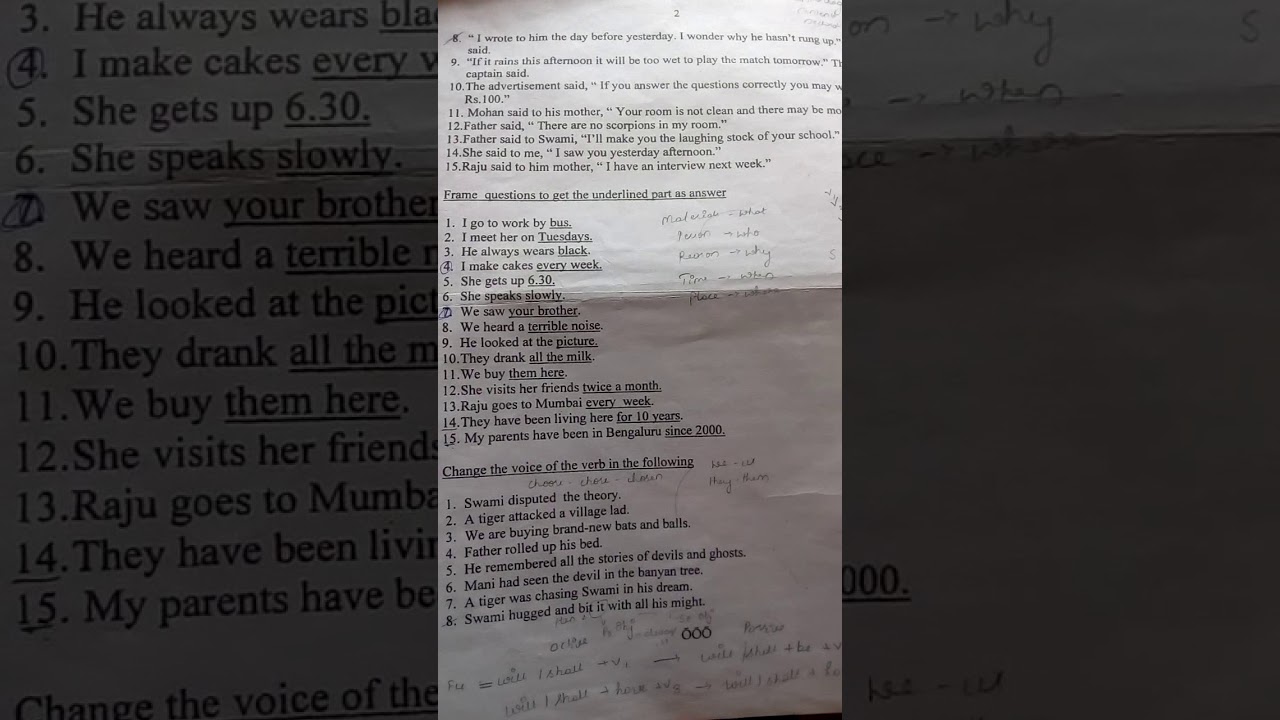 3. He always wears bla
4. I make cakes every w
5. She gets up 6.30.
6. She speaks slowly.
7. We saw your brother
8. We heard a terrible n
9. He looked at the pict
10.They drank all the m
11.We buy them here.
12.She visits her friends
13.Raju goes to Mumba
14.They have been livin
15. My parents have be
Change the voice of the
2
8. " I wrote to him the day before yesterday. I wonder why he hasn't rung up."
said.
9. "If it rains this afternoon it will be too wet to play the match tomorrow." Th
captain said.
10.The advertisement said, " If you answer the questions correctly you may w
Rs.100."
11. Mohan said to his mother, " Your room is not clean and there may be mo
12.Father said, " There are no scorpions in my room."
13.Father said to Swami, "I'll make you the laughing stock of your school."
14.She said to me, " I saw you yesterday afternoon."
15.Raju said to him mother, " I have an interview next week."
Frame questions to get the underlined part as answer
1. I go to work by bus.
2. I meet her on Tuesdays.
3. He always wears black.
4. I make cakes every week.
5. She gets up 6.30.
6. She speaks slowly.
7. We saw your brother.
8. We heard a terrible noise.
9. He looked at the picture.
10.They drank all the milk.
11.We buy them here.
12.She visits her friends twice a month.
13.Raju goes to Mumbai every week.
14.They have been living here for 10 years.
15. My parents have been in Bengaluru since 2000.
- what
→ who
Reason → why
Time → when
Place →
Change the voice of the verb in the following
choose - chose - chosen
they - them
1. Swami disputed the theory.
2. A tiger attacked a village lad.
3. We are buying brand-new bats and balls.
4. Father rolled up his bed.
5. He remembered all the stories of devils and ghosts.
6. Mani had seen the devil in the banyan tree.
7. A tiger was chasing Swami in his dream.
8. Swami hugged and bit it with all his might.
ÕÕÕ
= will / shall + v1 → will / shall + be + v
will / shall + have + v3 → will / shall +
on → why
→ when
000.